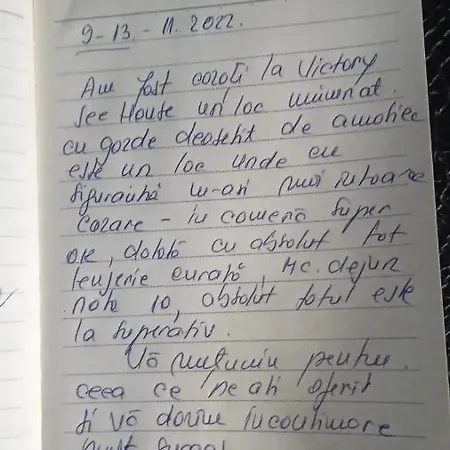 9-13-11.2022.
Am fost cazați la Victory
See House un loc minunat.
cu gazde deosebit de amabile
este un loc unde cu
siguranță m-aș mai întoarce
Cazare - în cameră super
ok, dotată cu absolut tot
lenjerie curată, Mc.dejun
nota 10, absolut totul este
la superlativ.
Vă mulțumim pentru
ceea ce ne-ați oferit
și vă dorim în continuare
mult succes!